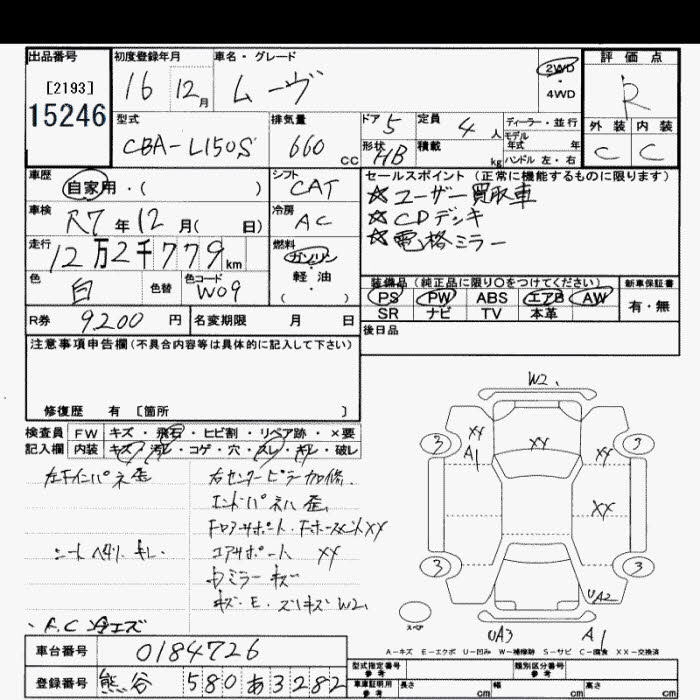 出品番号 初度登録年月 車名・グレード 2WD 評価点
[2193] 16 12月 ムーヴ ・4WD R
15246 型式 排気量 ドア 5 定員 4人 ディーラー・並行 外装 内装
CBA-L150S 660cc 形状 HB 積載 kg モデル年式 年 ハンドル 左・右 C C
車歴 自家用・( ) シフト CAT セールスポイント(正常に機能するものに限ります)
車検 R7年12月( 日) 冷房 AC ☆ユーザー買取車
☆CDデッキ
走行 12万2千779km 燃料 ガソリン・軽油・( ) ☆電格ミラー
色 白 色替 色コード W09 装備品(純正品に限り○をつけてください) 新車保証書
PS PW ABS エアB AW 有・無
R券 9200円 名変期限 月 日 SR ナビ TV 本革
注意事項申告欄(不具合内容等は具体的に記入して下さい) 後日品
修復歴 有 [箇所 ]
検査員 FW キズ・飛石・ヒビ割・リペア跡・×要
記入欄 内装 キズ・汚レ・コゲ・穴・スレ・キレ・破レ
右センターピラー加修.
エンドパネル歪.
コアサポート XX
シートヘタリ キレ
ミラーキズ
キズ・E・ズリキズ W2
・A.C冷エズ
W2
3 XX A1 XX XX 3
XX
3 3
UA2
スペア UA3 A1
A-キズ E-エクボ U-凹み W-補修跡 S-サビ C-腐食 XX-交換済
車台番号 0184726 型式指定番号 参考 類別区分番号 参考
登録番号 熊谷 580あ3282 車庫証明用 参考 長さ cm 幅 cm 高さ cm